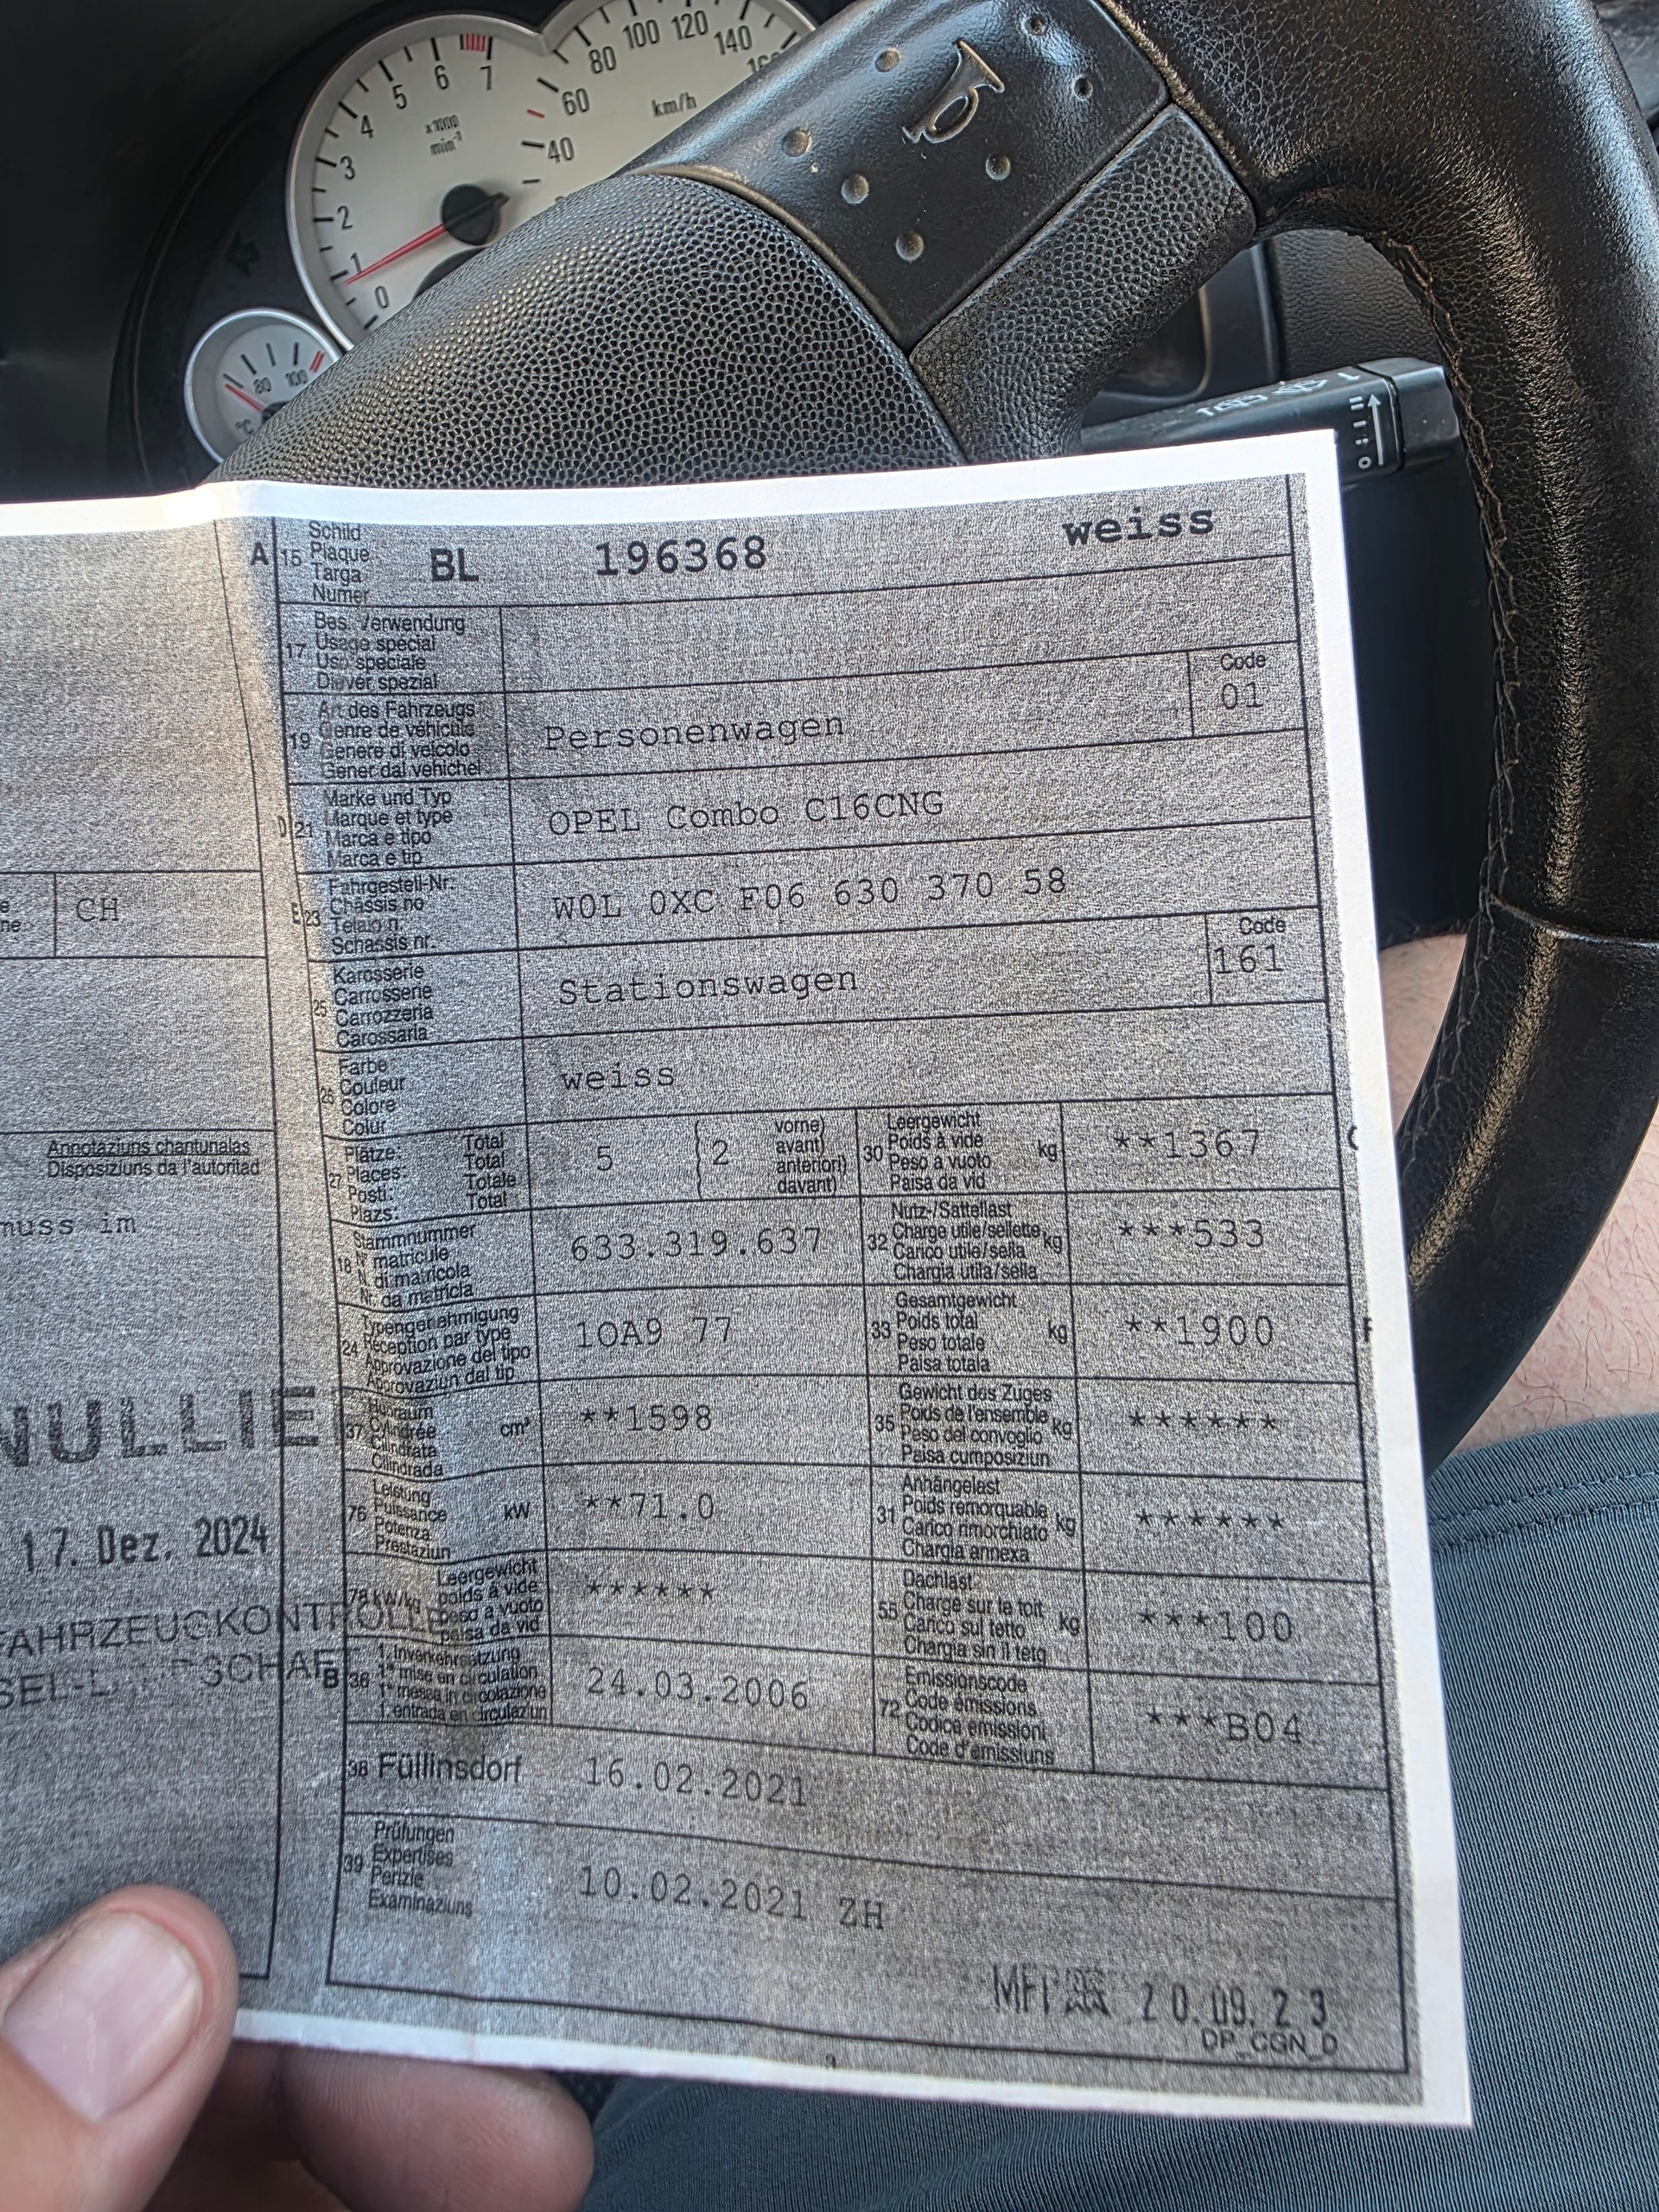 7
6
5
4
3
2
1
0
x1000
min⁻¹
100
120
80
140
60
km/h
40
80
100
°C
A
15
Schild
Plaque
Targa
Numer
BL
196368
weiss
17
Bes. Verwendung
Usage spécial
Uso speciale
Diever spezial
19
Art des Fahrzeugs
Genre de véhicule
Genere di veicolo
Gener dal vehichel
Personenwagen
Code
01
D
21
Marke und Typ
Marque et type
Marca e tipo
Marca e tip
OPEL Combo C16CNG
E
23
Fahrgestell-Nr.
Châssis no
Telaio n.
Schassis nr.
W0L 0XC F06 630 370 58
25
Karosserie
Carrosserie
Carrozzeria
Carossaria
Stationswagen
Code
161
26
Farbe
Couleur
Colore
Colur
weiss
27
Plätze: Total
Places: Total
Posti: Totale
Plazs: Total
5
2
vorne)
avant)
anteriori)
davant)
30
Leergewicht
Poids à vide
Peso a vuoto
Paisa da vid
kg
**1367
18
Stammnummer
N° matricule
N. di matricola
Nr. da matricla
633.319.637
32
Nutz-/Sattellast
Charge utile/sellette
Carico utile/sella
Chargia utila/sella
kg
***533
24
Typengenehmigung
Réception par type
Approvazione del tipo
Approvaziun dal tip
1OA9 77
33
Gesamtgewicht
Poids total
Peso totale
Paisa totala
kg
**1900
37
Hubraum
Cylindrée
Cilindrata
Cilindrada
cm³
**1598
35
Gewicht des Zuges
Poids de l'ensemble
Peso del convoglio
Paisa cumposiziun
kg
******
76
Leistung
Puissance
Potenza
Prestaziun
kW
**71.0
31
Anhängelast
Poids remorquable
Carico rimorchiato
Chargia annexa
kg
******
78
kW/kg
Leergewicht
poids à vide
peso a vuoto
paisa da vid
******
55
Dachlast
Charge sur le toit
Carico sul tetto
Chargia sin il tetg
kg
***100
B
36
1. Inverkehrsetzung
1re mise en circulation
1a messa in circolazione
1. entrada en circulaziun
24.03.2006
72
Emissionscode
Code émissions
Codice emissioni
Code d'emissiuns
***B04
38
Füllinsdorf
16.02.2021
39
Prüfungen
Expertises
Perizie
Examinaziuns
10.02.2021 ZH
20.09.23
DP_CGN_D
CH
Annotaziuns chantunalas
Disposiziuns da l'autoritad
muss im
NULLIE
17. Dez. 2024
FAHRZEUGKONTROLLE